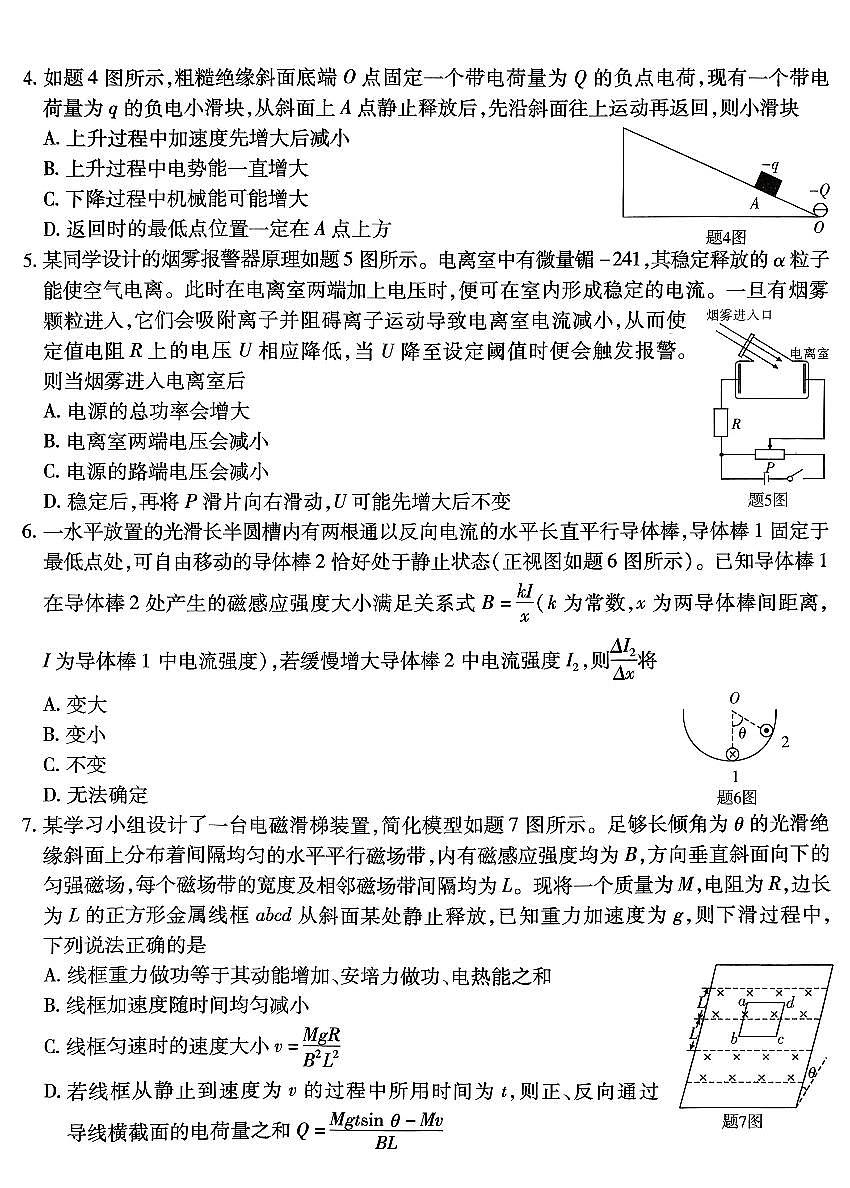 4. 如题4图所示,粗糙绝缘斜面底端O点固定一个带电荷量为Q的负点电荷,现有一个带电
荷量为q的负电小滑块,从斜面上A点静止释放后,先沿斜面往上运动再返回,则小滑块
A. 上升过程中加速度先增大后减小
B. 上升过程中电势能一直增大
C. 下降过程中机械能可能增大
D. 返回时的最低点位置一定在A点上方
-q
A
-Q
O
题4图
5. 某同学设计的烟雾报警器原理如题5图所示。电离室中有微量镅-241,其稳定释放的α粒子
能使空气电离。此时在电离室两端加上电压时,便可在室内形成稳定的电流。一旦有烟雾
颗粒进入,它们会吸附离子并阻碍离子运动导致电离室电流减小,从而使
定值电阻R上的电压U相应降低,当U降至设定阈值时便会触发报警。
则当烟雾进入电离室后
A. 电源的总功率会增大
B. 电离室两端电压会减小
C. 电源的路端电压会减小
D. 稳定后,再将P滑片向右滑动,U可能先增大后不变
烟雾进入口
电离室
R
P
题5图
6. 一水平放置的光滑长半圆槽内有两根通以反向电流的水平长直平行导体棒,导体棒1固定于
最低点处,可自由移动的导体棒2恰好处于静止状态(正视图如题6图所示)。已知导体棒1
在导体棒2处产生的磁感应强度大小满足关系式B=kI/x(k为常数,x为两导体棒间距离,
I为导体棒1中电流强度),若缓慢增大导体棒2中电流强度I₂,则ΔI₂/Δx将
A. 变大
B. 变小
C. 不变
D. 无法确定
O
θ
2
1
题6图
7. 某学习小组设计了一台电磁滑梯装置,简化模型如题7图所示。足够长倾角为θ的光滑绝
缘斜面上分布着间隔均匀的水平平行磁场带,内有磁感应强度均为B,方向垂直斜面向下的
匀强磁场,每个磁场带的宽度及相邻磁场带间隔均为L。现将一个质量为M,电阻为R,边长
为L的正方形金属线框abcd从斜面某处静止释放,已知重力加速度为g,则下滑过程中,
下列说法正确的是
A. 线框重力做功等于其动能增加、安培力做功、电热能之和
B. 线框加速度随时间均匀减小
C. 线框匀速时的速度大小v=MgR/B²L²
D. 若线框从静止到速度为v的过程中所用时间为t,则正、反向通过
导线横截面的电荷量之和Q=Mgtsin θ-Mv/BL
L
L
a
d
b
c
θ
题7图